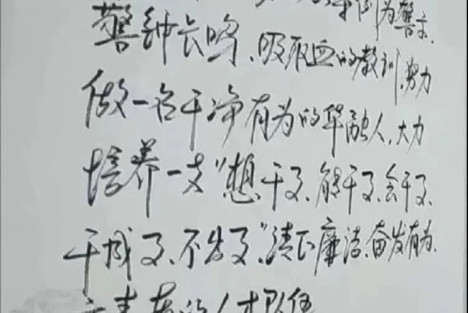 案例为警示、
警钟长鸣、吸取血的教训,努力
做一名干净有为的华融人,大力
培养一支“想干事、能干事、会干事、
干成事、不出事”,清正廉洁、奋发有为、
的人才队伍